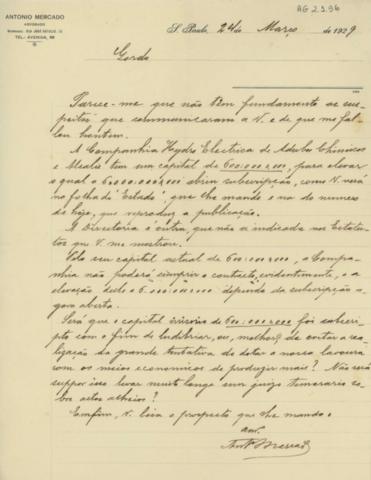 ANTONIO MERCADO
ADVOGADO
TEL. AVENIDA, 98
AG 2.9.96
S. Paulo, 24 de Março de 1929
Gordo
Parece-me que não têm fundamento as sus-
peitas que communicaram a V. e de que me fal-
lou hontem.
A Companhia Hydro Electrica de Adubos Chimicos
e Metaes tem um capital de 600:000$000, para elevar
o qual a 6.000:000$000 abriu subscripção, como V. verá
na folha d'"Estado", que lhe mando e no do numero
de hoje, que reproduz a publicação.
A Directoria é outra, que não a indicada nos Estatu-
tos que V. me mostrou.
Pelo seu capital actual de 600:000$000, a Compa-
nhia não poderá cumprir o contracto, evidentemente, e a
elevação deste a 6.000:000$000 depende da subscripção a-
gora aberta.
Será que o capital de 600:000$000 foi subscri-
pto com o fim de ludibriar, ou, melhor, de evitar a rea-
lização da grande tentativa de dotar a nossa lavoura
com os meios economicos de produzir mais? Não será
suppor isso levar muito longe um juizo temerario so-
bre actos alheios?
Emfim, V. leia o prospecto que lhe mando.
Antº Mercado